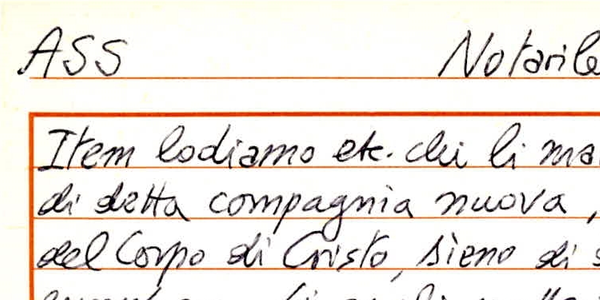 ASS Notarile
Item lodiamo etc. chi li
di detta compagnia nuova,
del Corpo di Cristo, sieno di